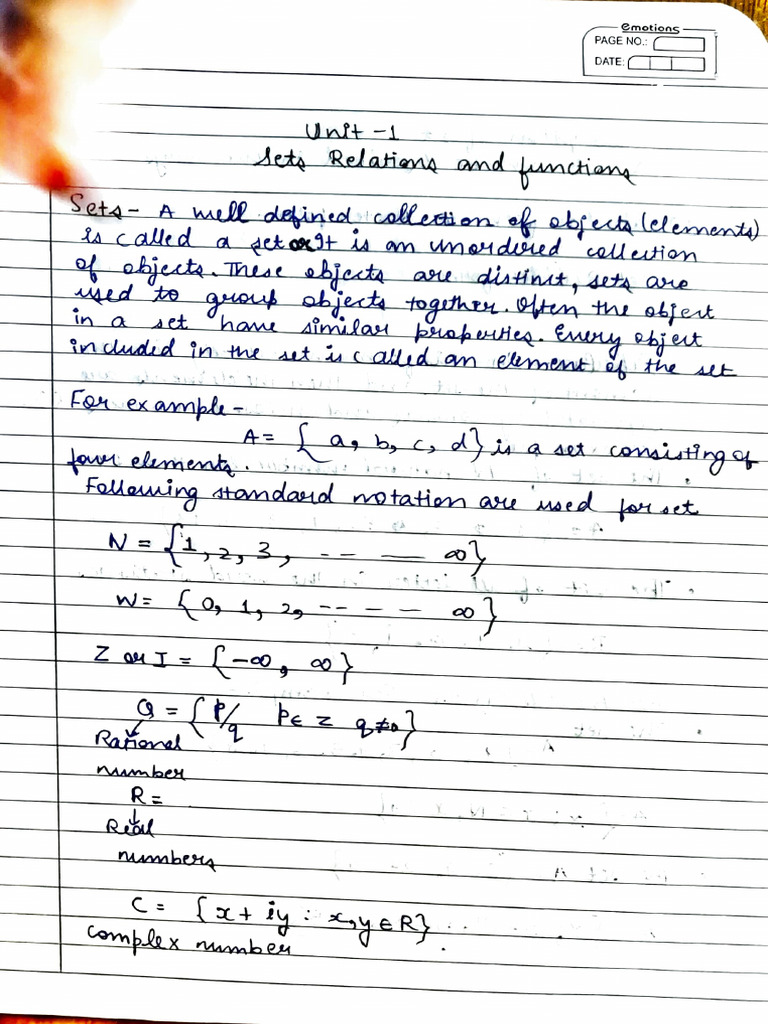 emotions
PAGE NO.:
DATE:
Unit -1
Sets Relations and functions
Sets- A well defined collection of objects (elements)
is called a set or It is an unordered collection
of objects. These objects are distinit, sets are
used to group objects together. Often the object
in a set have similar properties. Every object
included in the set is called an element of the set
For example-
A = { a, b, c, d} is a set consisting of
four elements.
Following standard notation are used for set
N = {1, 2, 3, -- — ∞}
W = {0, 1, 2, -- - - ∞}
Z or I = {-∞, ∞}
Q = {p/q p∈ z q≠0}
Rational
number
R =
↓
Real
numbers
C = {x + iy : x,y ∈ R}
complex number